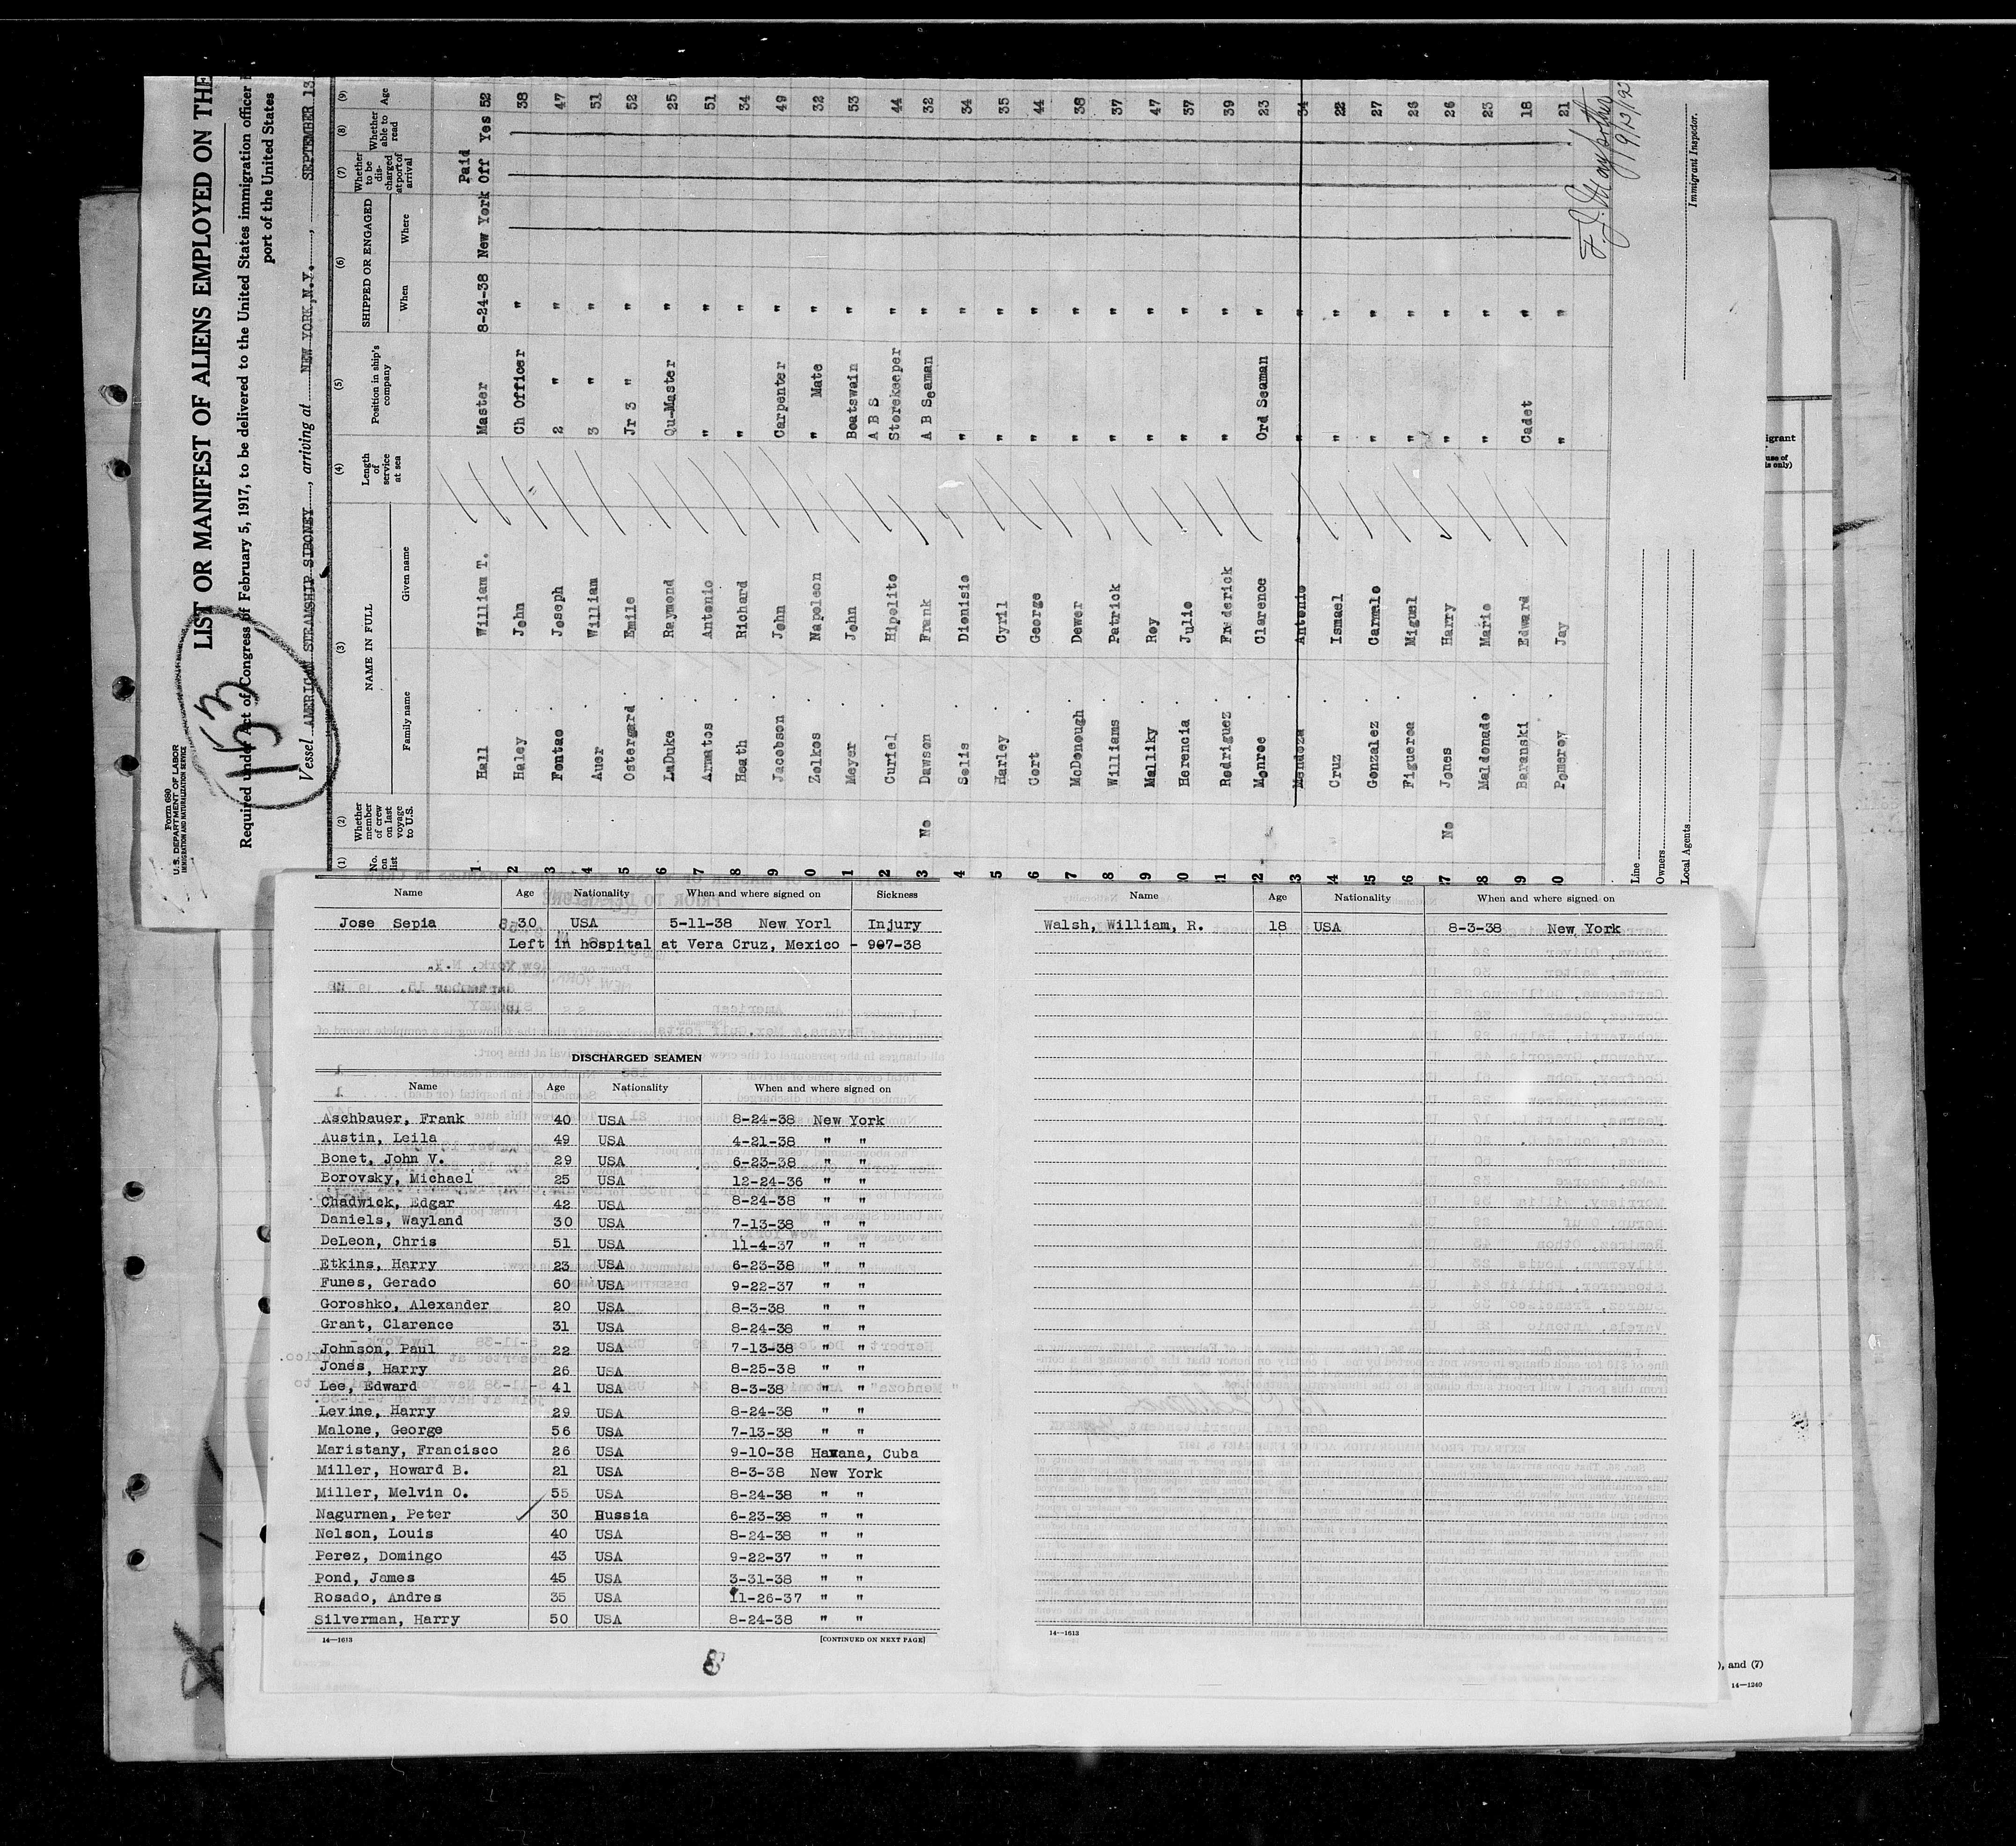 Form 680
U. S. DEPARTMENT OF LABOR
IMMIGRATION AND NATURALIZATION SERVICE
153
LIST OR MANIFEST OF ALIENS EMPLOYED ON THE
Required under Act of Congress of February 5, 1917, to be delivered to the United States immigration officer
port of the United States
Vessel AMERICAN STEAMSHIP SIBONEY, arriving at NEW YORK,N.Y., SEPTEMBER 13
(1) (2) (3) (4) (5) (6) (7) (8) (9)
No. on list Whether member of crew on last voyage to U.S. NAME IN FULL Family name Given name Length of service at sea Position in ship's company SHIPPED OR ENGAGED When Where Whether to be discharged at port of arrival Whether able to read Age
Paid
1 Hall William T. Master 8-24-38 New York Off Yes 52
2 Haley John Ch Officer " 38
3 Fontao Joseph 2 " " 47
4 Auer William 3 " " 51
5 Ostergard Emile Jr 3 " " 52
6 LaDuke Raymond Qu-Master " 25
7 Armatos Antonio " " 51
8 Heath Richard " " 34
9 Jacobson John Carpenter " 49
0 Zolkos Napoleon " Mate " 32
1 Meyer John Boatswain " 53
A B S
2 Curiel Hipolito Storekeeper " 44
3 No Dawson Frank A B Seaman " 32
4 Solis Dionisio " " 34
5 Harley Cyril " " 35
6 Cort George " " 44
7 McDonough Dewer " " 38
8 Williams Patrick " " 37
9 Malliky Roy " " 47
0 Herencia Julio " " 37
1 Rodriguez Frederick " " 39
2 Monroe Clarence Ord Seaman " 23
3 Mendoza Antonio " " 34
4 Cruz Ismael " " 22
5 Gonzalez Carmalo " " 27
6 Figueroa Miguel " " 26
7 No Jones Harry " " 26
8 Maldonado Mario " " 23
9 Baranski Edward Cadet " 18
0 Pomeroy Jay " " 21
Line
Owners
Local Agents
Immigrant Inspector.
Name Age Nationality When and where signed on Sickness
Jose Sepia 30 USA 5-11-38 New Yorl Injury
Left in hospital at Vera Cruz, Mexico - 907-38
DISCHARGED SEAMEN
Name Age Nationality When and where signed on
Aschbauer, Frank 40 USA 8-24-38 New York
Austin, Leila 49 USA 4-21-38 " "
Bonet, John V. 29 USA 6-23-38 " "
Borovsky, Michael 25 USA 12-24-36 " "
Chadwick, Edgar 42 USA 8-24-38 " "
Daniels, Wayland 30 USA 7-13-38 " "
DeLeon, Chris 51 USA 11-4-37 " "
Etkins, Harry 23 USA 6-23-38 " "
Funes, Gerado 60 USA 9-22-37 " "
Goroshko, Alexander 20 USA 8-3-38 " "
Grant, Clarence 31 USA 8-24-38 " "
Johnson, Paul 22 USA 7-13-38 " "
Jones, Harry 26 USA 8-25-38 " "
Lee, Edward 41 USA 8-3-38 " "
Levine, Harry 29 USA 8-24-38 " "
Malone, George 56 USA 7-13-38 " "
Maristany, Francisco 26 USA 9-10-38 Havana, Cuba
Miller, Howard B. 21 USA 8-3-38 New York
Miller, Melvin O. 55 USA 8-24-38 " "
Nagurnen, Peter 30 Russia 6-23-38 " "
Nelson, Louis 40 USA 8-24-38 " "
Perez, Domingo 43 USA 9-22-37 " "
Pond, James 45 USA 3-31-38 " "
Rosado, Andres 35 USA 11-26-37 " "
Silverman, Harry 50 USA 8-24-38 " "
14—1613 [CONTINUED ON NEXT PAGE]
8
Name Age Nationality When and where signed on
Walsh, William, R. 18 USA 8-3-38 New York
14—1613
), and (7)
14—1240